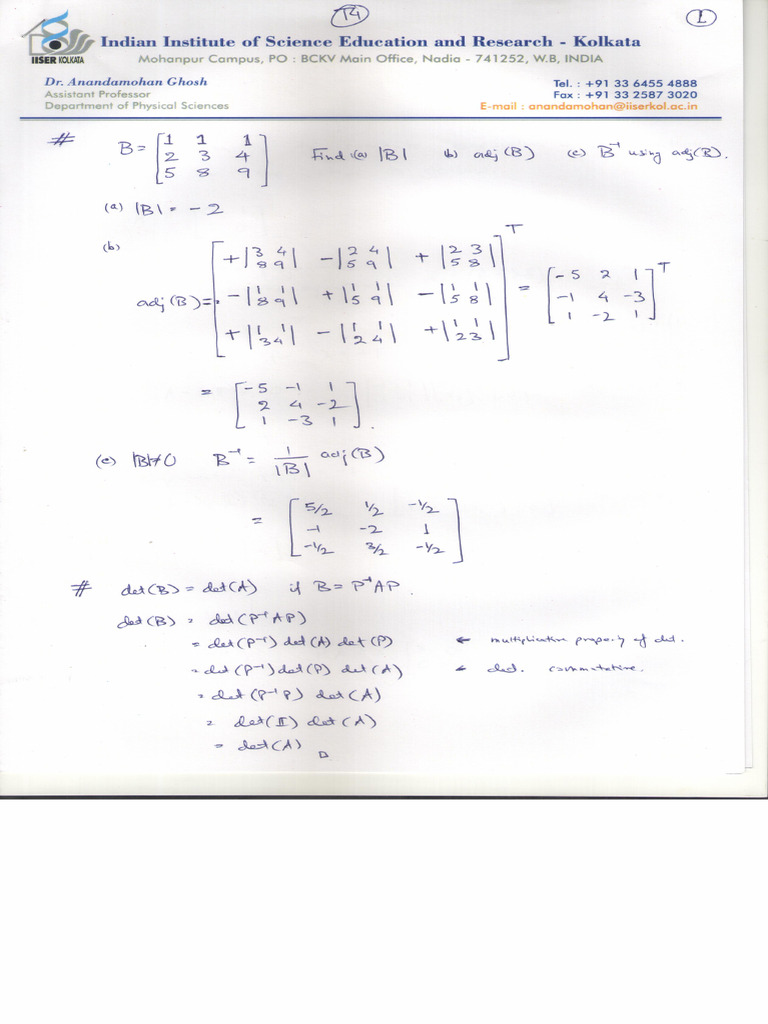 T4
1
IISER KOLKATA
Indian Institute of Science Education and Research - Kolkata
Mohanpur Campus, PO : BCKV Main Office, Nadia - 741252, W.B, INDIA
Dr. Anandamohan Ghosh
Assistant Professor
Department of Physical Sciences
Tel. : +91 33 6455 4888
Fax : +91 33 2587 3020
E-mail : anandamohan@iiserkol.ac.in
# B = [1 1 1; 2 3 4; 5 8 9] Find (a) |B| (b) adj(B) (c) B⁻¹ using adj(B).
(a) |B| = -2
(b)
adj(B) = [+|3 4; 8 9| -|2 4; 5 9| +|2 3; 5 8|; -|1 1; 8 9| +|1 1; 5 9| -|1 1; 5 8|; +|1 1; 3 4| -|1 1; 2 4| +|1 1; 2 3|]ᵀ = [-5 2 1; -1 4 -3; 1 -2 1]ᵀ
= [-5 -1 1; 2 4 -2; 1 -3 1].
(c) |B|≠0 B⁻¹ = 1/|B| adj(B)
= [5/2 1/2 -1/2; -1 -2 1; -1/2 3/2 -1/2]
# det(B) = det(A) if B = P⁻¹AP.
det(B) = det(P⁻¹AP)
= det(P⁻¹) det(A) det(P) ← multiplicative property of det.
= det(P⁻¹) det(P) det(A) ← det. commutative.
= det(P⁻¹P) det(A)
= det(I) det(A)
= det(A) □